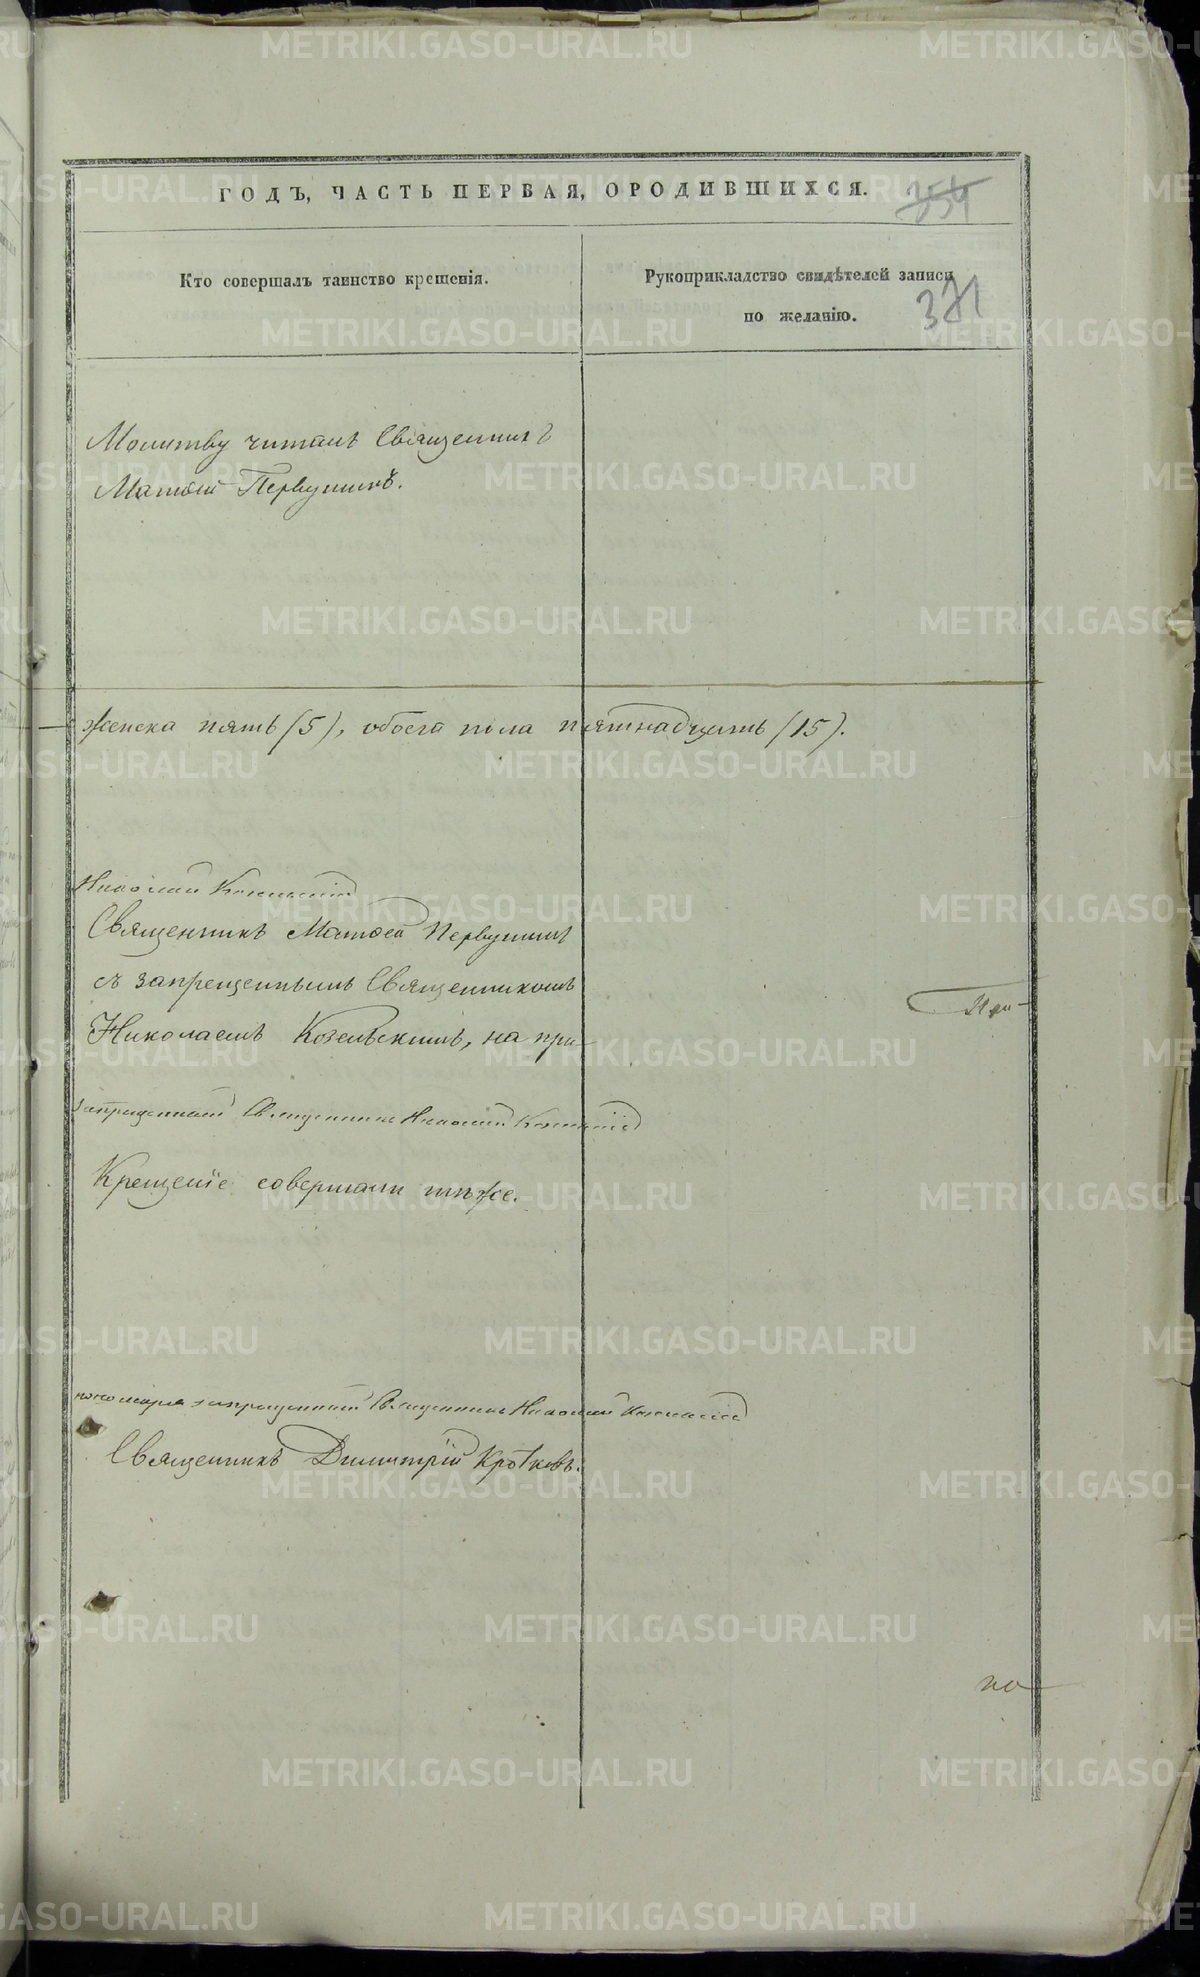 ГОДЪ, ЧАСТЬ ПЕРВАЯ, ОРОДИВШИХСЯ.
254
Кто совершалъ таинство крещенія.
Рукоприкладство свидѣтелей записи
по желанію.
371
Молитву читалъ Священникъ
Матѳей Первушинъ.
женска пять (5), обоего пола пятнадцать (15).
Николай
Священникъ Матѳей Первушинъ
съ запрещеннымъ Священникомъ
Николаемъ Козельскимъ, на при-
При-
запрещенный Священникъ Николай
Крещеніе совершали тѣже.
пономаря запрещенный Священникъ Николай
Священникъ Димитрій Кротковъ.
по-
METRIKI.GASO-URAL.RU